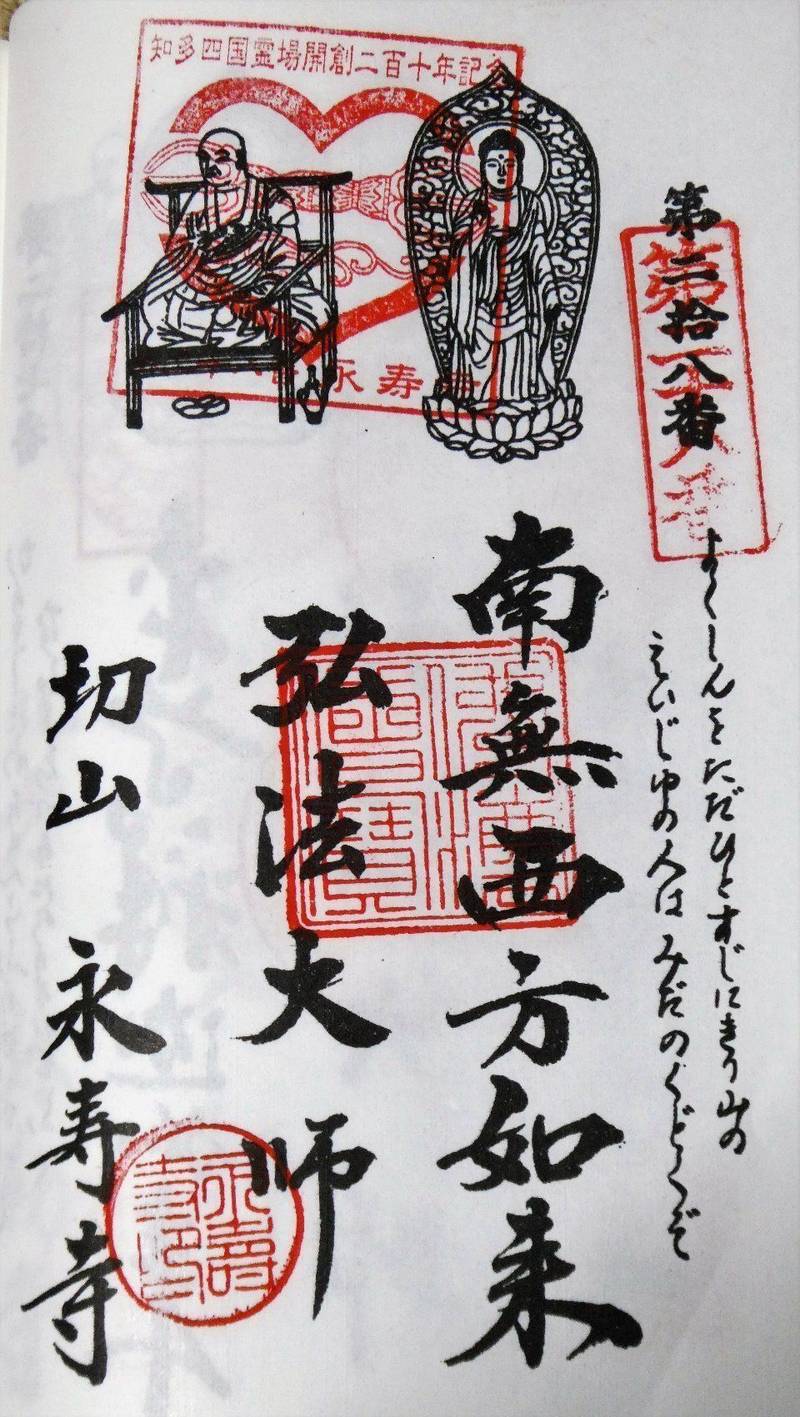 知多四国霊場開創二百十年記念
永寿
第二拾八番
第二十八番
よくしんをただひとすじにきり山の
えいじゆの人はみだのくどくぞ
南無西方如来
弘法大師
切山 永寿寺